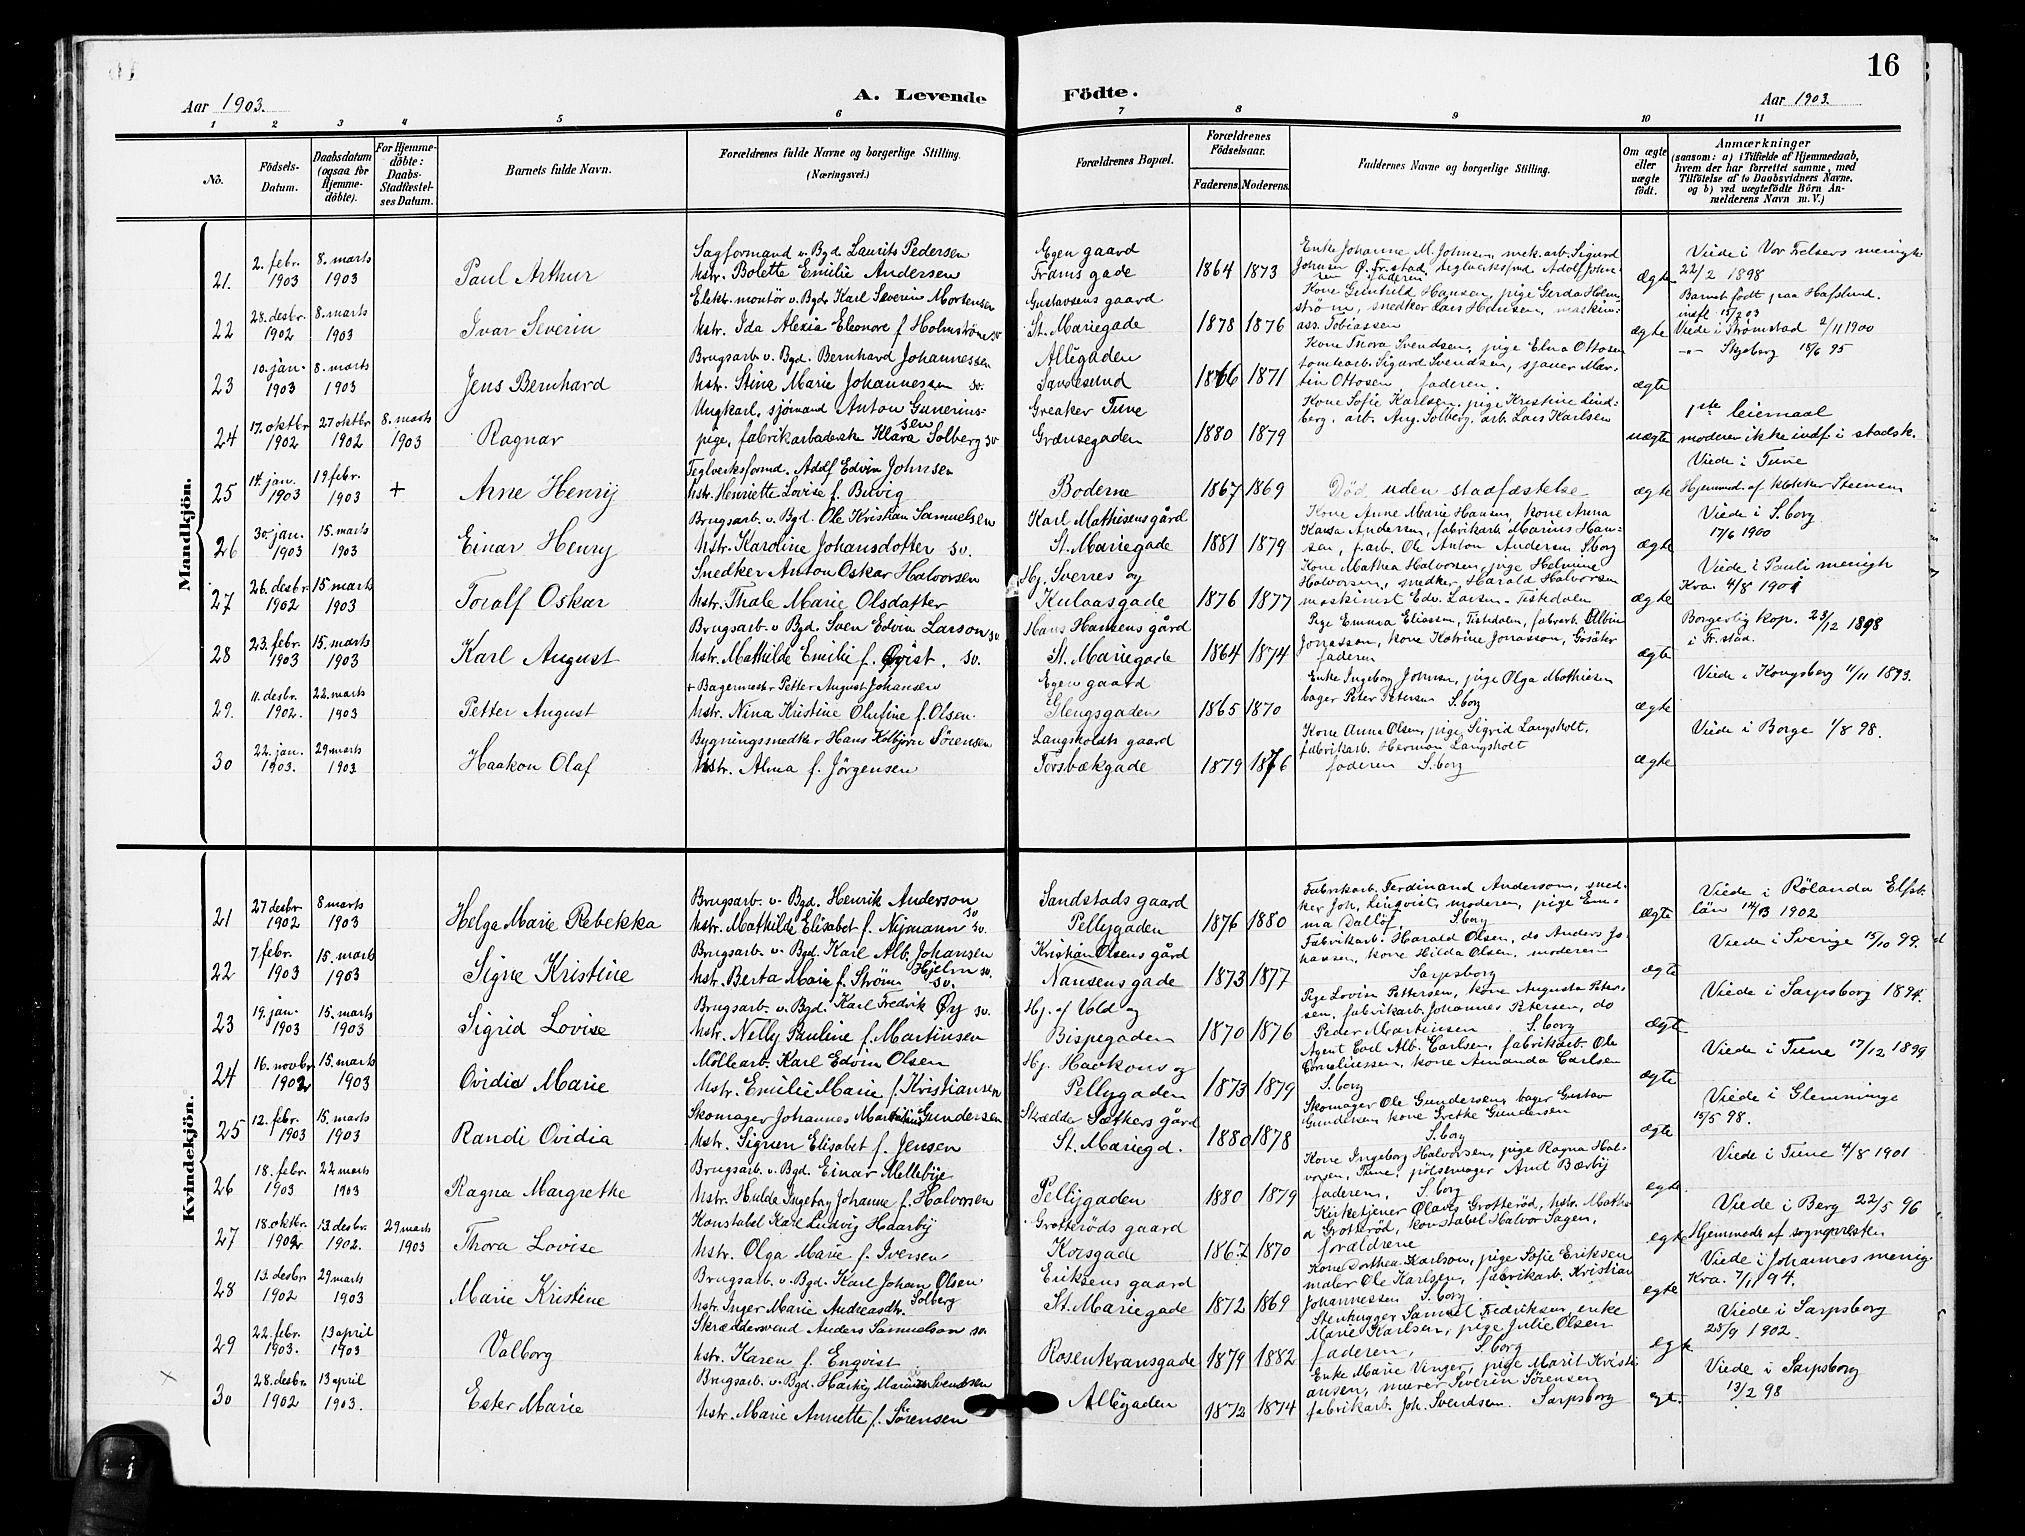 16
Aar 1903.
A. Levende Födte.
Aar 1903.
1 2 3 4 5 6 7 8 9 10 11
No.
Födsels-Datum.
Daabsdatum (ogsaa for Hjemme-döbte).
For Hjemme-döbte: Daabs-Stadfæstel-ses Datum.
Barnets fulde Navn.
Forældrenes fulde Navne og borgerlige Stilling. (Næringsvei.)
Forældrenes Bopæl.
Forældrenes Födselsaar.
Faderens. Moderens.
Faddernes Navne og borgerlige Stilling.
Om ægte eller uægte födt.
Anmærkninger
(saasom: a) i Tilfælde af Hjemmedaab, hvem der har forrettet samme, med Tilföielse af to Daabsvidners Navne. og b) ved uægtefödte Börn An-melderens Navn m. V.)
Mandkjön.
21. 2. febr. 1903 8. marts 1903 Paul Arthur
Sagformand v. Bgd. Laurits Pedersen
hstr. Bolette Emilie Andersen
Egen gaard
Frams gade 1864 1873
Enke Johanne M. Johnsen, mek. arb. Sigurd
Johnsen Ø. Fr.stad, teglverksfmd Adolf John-
sen faderen
ægte
Viede i Vor Frelsers menigh
22/2 1898
22 28. desbr. 1902 8. marts 1903 Ivar Severin
Elektr. montör v. Bgd. Karl Severin Mortensen
hstr. Ida Alexia Eleonore f. Holmstrøm sv
Gustavsens gaard
St. Mariegade 1878 1876
Kone Gunhild Hansen, pige Gerda Holm
strøm, snedker Lars Hansen, maskin-
ass. Tobiassen
ægte
Barnet födt paa Hafslund.
Viede i Strømstad 2/11 1900
23 10. jan. 1903 8. marts 1903 Jens Bernhard
Brugsarb. v. Bgd. Bernhard Johannessen
hstr. Stine Marie Johannessen sv.
Allegaden
Sandesund 1866 1871
Kone Thora Svendsen, pige Elna Ottosen
tomtearb. Sigurd Svendsen, sjauer Mar-
tin Ottosen, faderen.
ægte
-"- Skjeberg 18/6 95
24 17. oktbr 1902 27 oktbr 1902 8. marts 1903 Ragnar
Ungkarl, sjömand Anton Gunerius-
sen
pige, fabrikarbaderske Klara Solberg sv
Greaker Tune
Grænsegaden 1880 1879
Kone Sofie Karlsen, pige Kristine Lind-
berg, arb. Aug. Solberg, arb. Lars Karlsen
uægte
1ste leiermaal
moderen ikke indf. i stadsk.
25 14. jan. 1903 19 febr. 1903 + Arne Henry
Teglverksformd. Adolf Edvin Johnsen
hstr. Henriette Lovise f. Belvig
Boderne 1867 1869
Død uden stadfæstelse
ægte
Viede i Tune
Hjemmed. af klokker Steensen
26 30. jan. 1903 15. marts 1903 Einar Henry
Brugsarb. v. Bgd. Ole Kristian Samuelsen
hstr. Karoline Johansdotter sv.
Karl Mathisens gård
St. Mariegade 1881 1879
Kone Anne Marie Hansen, kone Anna
Kaisa Andersen, fabrikarb. Marius Han-
sen, f.arb. Ole Anton Andersen S.borg
ægte
Viede i S.borg
17/6 1900
27 26. desbr. 1902 15. marts 1903 Toralf Oskar
Snedker Anton Oskar Halvorsen
hstr. Thale Marie Olsdatter
Hj. Sverres og
Kulaasgade 1876 1877
Kone Mathea Halvorsen, pige Helmine
Halvorsen, snedker Harald Halvorsen
maskinist Edv. Larsen - Tistedalen
ægte
Viede i Pauli menigh
Kra. 4/8 1901
28 23. febr. 1903 15. marts 1903 Karl August
Brugsarb. v Bgd. Sven Edvin Larson sv
hstr. Mathilde Emilie f. Qvist. sv.
Hans Hansens gård
St. Mariegade 1864 1874
Pige Emma Eliassen, Tistedalen, fabrarb. Albin
Jonassen, kone Katrine Jonasson, Gosäter
faderen
ægte
Borgerlig kop. 23/12 1898
i Fr.stad.
29. 11. desbr. 1902. 22. marts 1903 Petter August
+ Bagermester Petter August Johansen
hstr. Nina Kristine Olufine f. Olsen.
Egen gaard
Glengsgaden 1865 1870
Enke Ingeborg Johnsen, pige Olga Mathisen
bager Peter Petersen S.borg
ægte
Viede i Kongsberg 11/11 1893.
30 22. jan. 1903. 29 marts 1903 Haakon Olaf
Bygningssnedker Hans Kolbjørn Sørensen
hstr. Alma f. Jörgensen
Langsholdts gaard
Torsbækgade 1879 1876
Kone Anna Olsen, pige Sigrid Langsholt,
fabrikarb. Herman Langsholt
faderen S.borg
ægte
Viede i Borge 1/8 98.
Kvindekjön.
21 27 desbr. 1902 8 marts 1903 Helga Marie Rebekka
Brugsarb. v. Bgd. Henrik Anderson sv
hstr. Mathilde Elisabet f. Nymann sv.
Sandstads gaard
Pellygaden 1876 1880
Fabrikarb. Ferdinand Anderson, sned-
ker Joh. Linqvist, moderen, pige Em-
ma Dallöf S.borg
ægte
Viede i Rölanda Elfsb.
län 1902
22 7 febr. 1903 15. marts 1903 Signe Kristine
Brugsarb. v. Bgd. Karl Alb. Johansen
Hjelm sv.
hstr. Berta Marie f. Ström sv.
Kristian Olsens gård
Nansens gade 1873 1877
Fabrikarb. Harald Olsen, do Anders Jo
hansen, kone Hilda Olsen, moderen
Sarpsborg
ægte
Viede i Sverige 15/10 99.
23 19. jan. 1903 15. marts 1903 Sigrid Lovise
Brugsarb. v. Bgd. Karl Fredrik Øy sv.
hstr. Nelly Pauline f. Martinsen
Hj. af Vold og
Bispegaden 1870 1876
Pige Lovise Pettersen, kone Augusta Peter-
sen, fabrikarb. Johannes Petersen, do
Peder Martinsen S.borg
ægte
Viede i Sarpsborg 1894.
24 16. novbr 1902 15. marts 1903 Ovidia Marie
Mölleaarb. Karl Edvin Olsen
hstr. Emilie Marie f. Kristiansen
Hj. Haakons og
Pellygaden 1873 1879
Agent Carl Alb. Carlsen, fabrikarb. Ole
Corneliussen, kone Amanda Carlsen
S.borg
ægte
Viede i Tune 17/12 1899
25 12. febr. 1903 15. marts 1903 Randi Ovidia
Skomager Johannes Martinius Gundersen
hstr. Signen Elisabet f. Jensen
Skrædder Sætkers gård
St. Mariegd. 1880 1878
Skomager Ole Gundersen, bager Gustav
Gundersen, kone Grethe Gundersen
S.borg
ægte
Viede i Glemminge
15/5 98.
26 18. febr. 1903 22 marts 1903 Ragna Margrethe
Brugsarb. v. Bgd. Einar Mellebye
hstr. Hulda Ingeborg Johanne f. Halvorsen
Pellygaden 1880 1879
Kone Ingeborg Halvorsen, pige Ragna Hal-
vorsen, Tune, pölsemager Arnt Bærby
faderen, S.borg
egte
Viede i Tune 4/8 1901
27 18. oktbr. 1902 13. desbr 1902. 29 marts 1903 Thora Lovise
Konstabel Karl Ludvig Hdarby
hstr. Olga Marie f. Iversen
Grotteröds gaard
Korsgade 1867 1870
Kirketjener Olaves Grotteröd, hstr. Mathe
a Grotteröd, konstabel Halvor Sagen,
forældrene
egte
Viede i Berg 22/5 96
Hjemmedt af sognepresten
28 13. desbr 1902 29 marts 1903 Marie Kristine
Brugsarb. v. Bgd. Karl Johan Olsen
Solberg
hstr. Inger Marie Andreasdtr.
Eriksens gaard
St. Mariegade 1872 1869
Kone Dorthea Karlson, pige Sofie Eriksen
maler Ole Karlsen, fabrikarb. Kristian
Johannessen S.borg
egte
Viede i Johannes menig.
Kra. 7/11 94.
29 22. febr. 1903. 13 april 1903 Valborg
Skræddersvend Anders Samuelson sv.
hstr. Karen f. Enqvist
Rosenkransgade 1879 1882
Stenhugger Samuel Fredriksen, enke
Marie Karlsen, pige Julie Olsen
faderen, S.borg
egte
Viede i Sarpsborg
28/9 1902.
30 28. desbr. 1902 13 april 1903. Ester Marie
Brugsarb. v. Bgd. Hartvig Marius Svendsen
hstr. Marie Annette f. Sörensen
Allegaden 1872 1874
Enke Marie Vinger, pige Marit Kristi
ansen, murer Severin Sörensen
fabrikarb. Joh. Svendsen. Sarpsborg
egt.
Viede i Sarpsborg
13/2 98